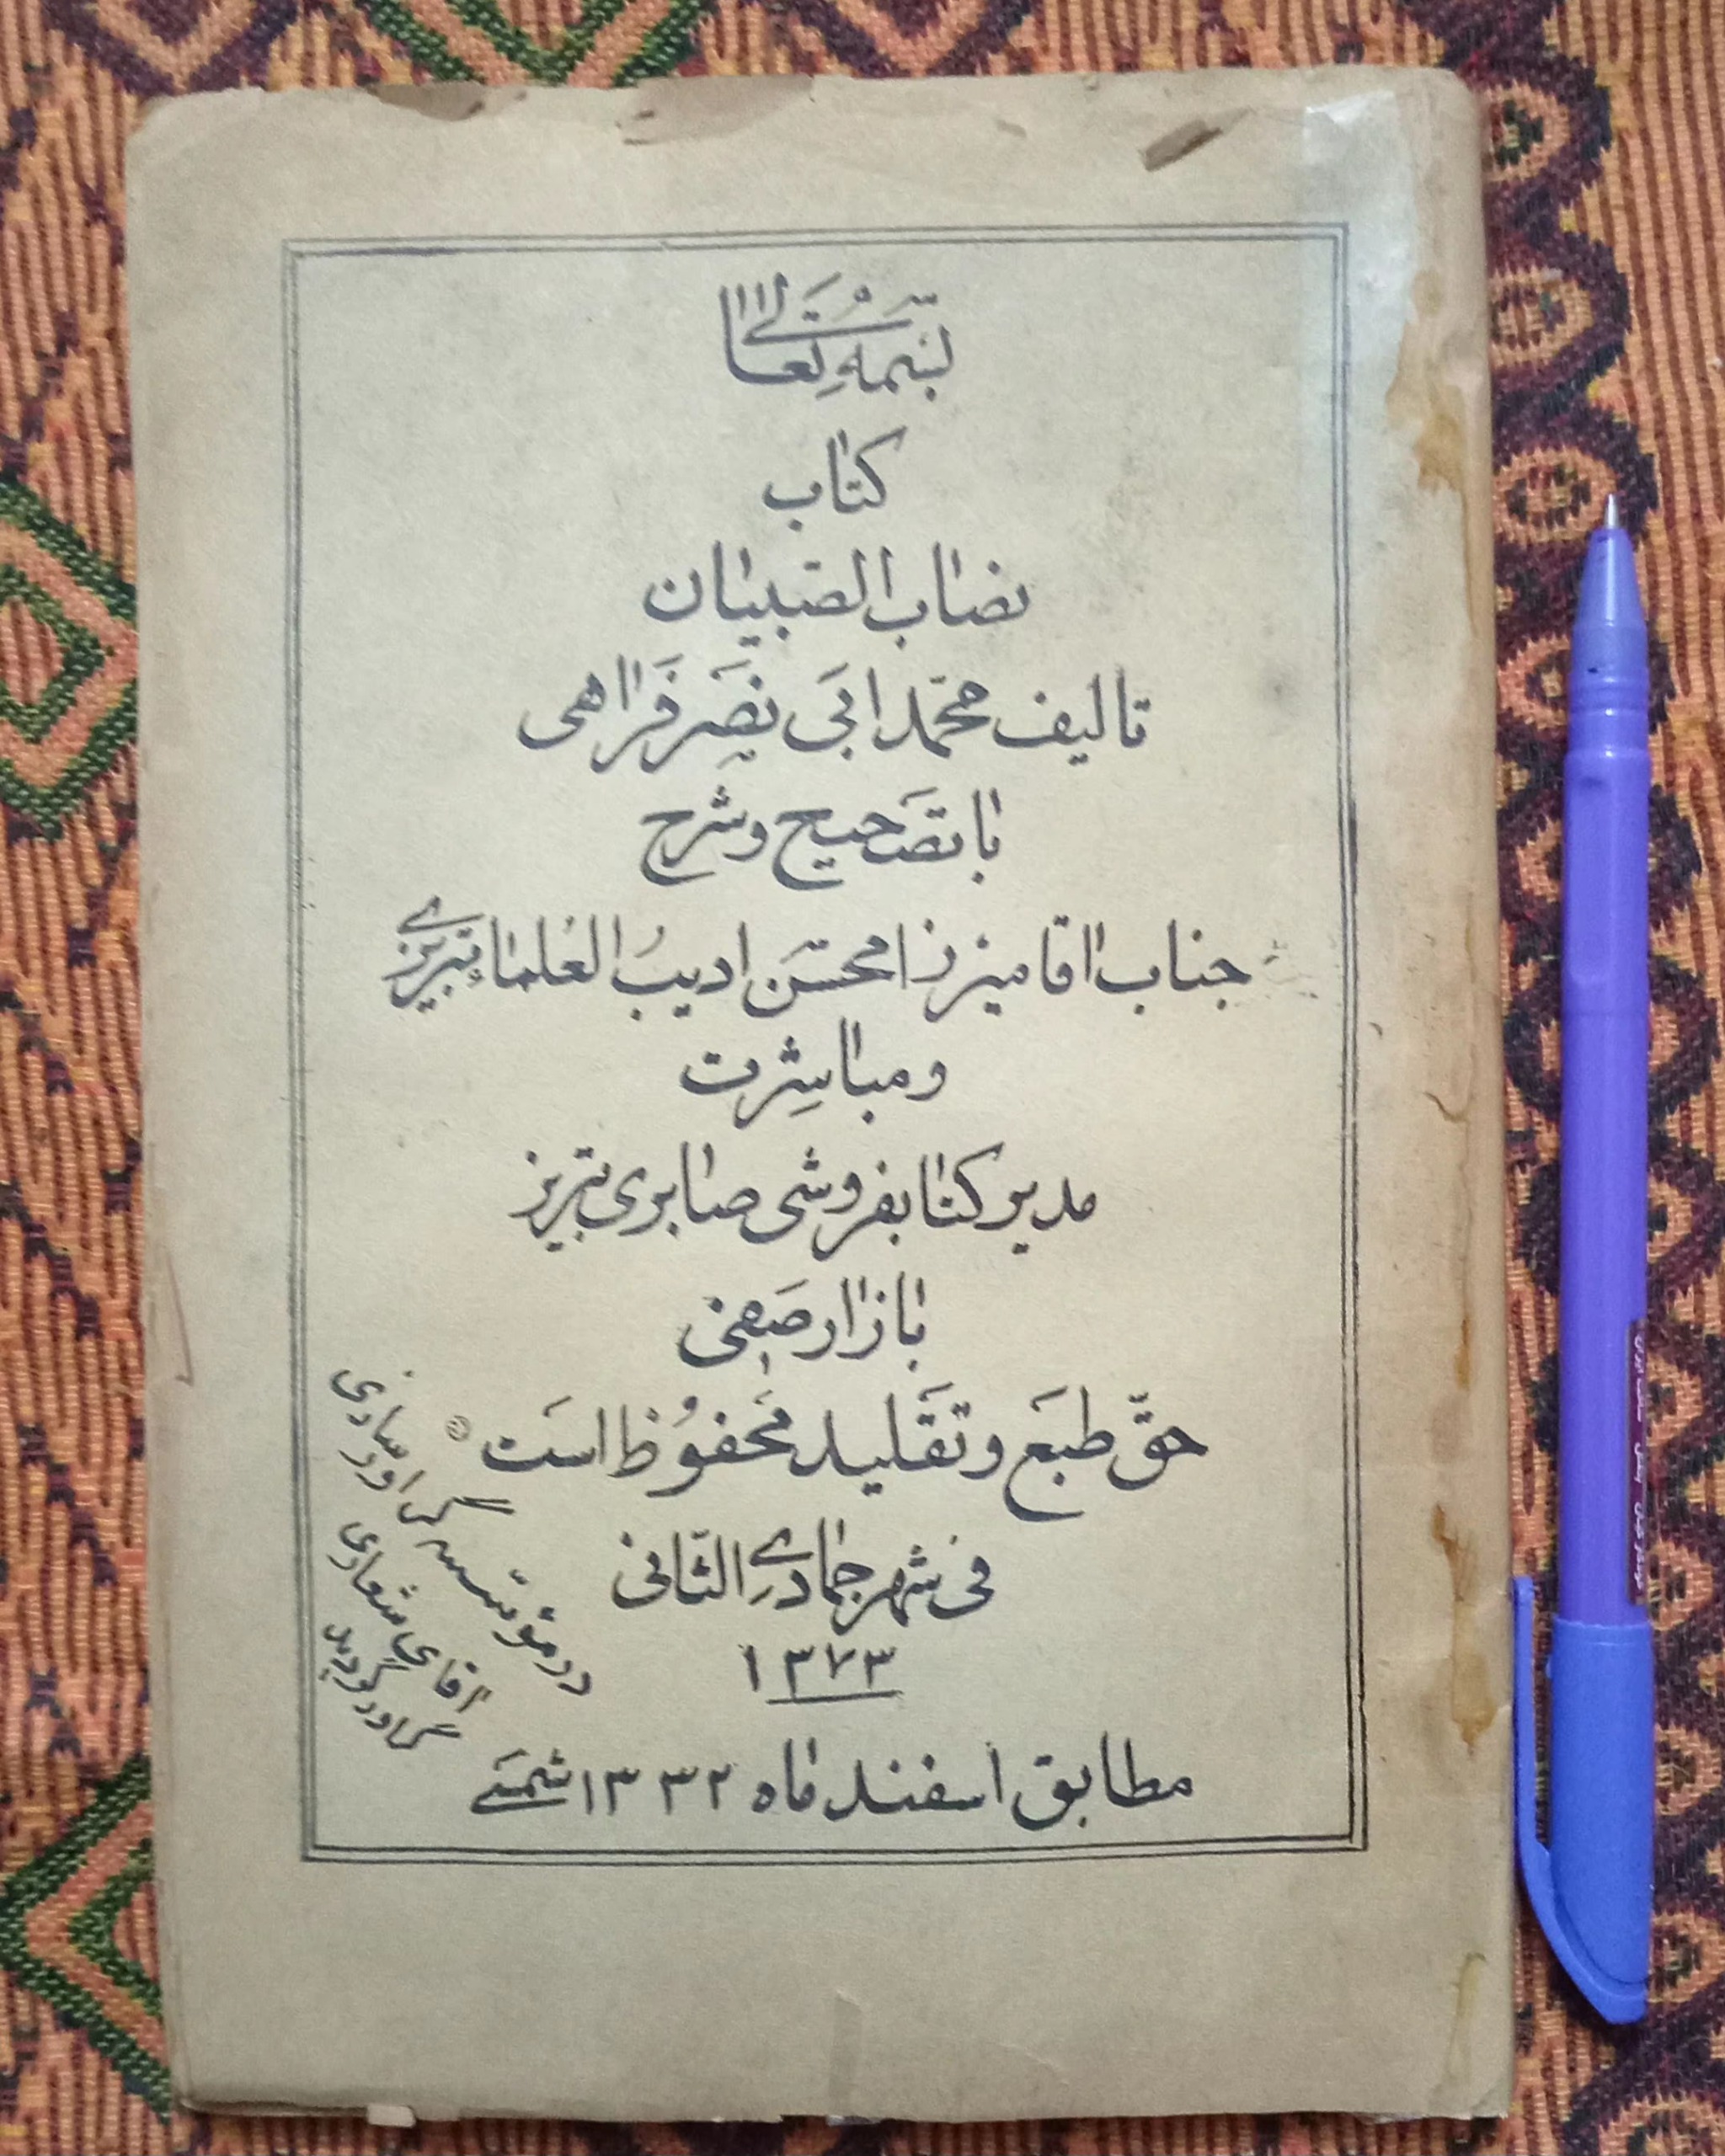 بسمه تعالی
کتاب
نصاب الصبیان
تالیف محمد ابی نصر فراهی
با تصحیح و شرح
جناب اقا میرزا محسن ادیب العلماء تبریزی
و مباشرت
مدیر کتابفروشی صابری تبریز
بازار صفی
حقّ طبع و تقلید محفوظ است
فی شهر جمادی الثانی
۱۳۷۳
مطابق اسفند ماه ۱۳۳۲ شمسی
در مؤسسه گراورسازی
اقای شعاری
گراور گردید